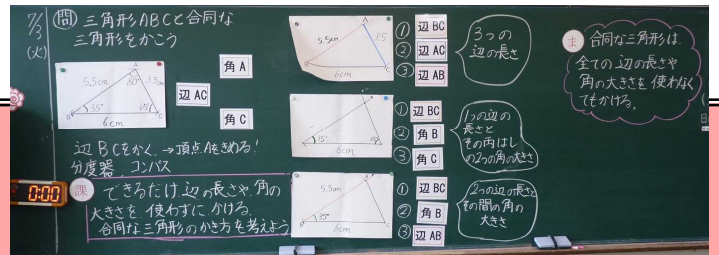 7/3
(火)
問 三角形ABCと合同な
三角形をかこう
A
5.5cm
80°
3.5cm
35°
65°
B
C
6cm
角A
辺AC
角C
辺BCをかく。→頂点Aをきめる!
分度器、コンパス
0:00
課 できるだけ辺の長さや、角の
大きさを使わずに、かける、
合同な三角形のかき方を考えよう
A
5.5cm
3.5
C
6cm
① 辺BC
② 辺AC
③ 辺AB
3つの
辺の長さ
35°
6cm
① 辺BC
② 角B
③ 角C
1つの辺の
長さと
その両はし
の2つの角の大きさ
5.5cm
35°
6cm
① 辺BC
② 角B
③ 辺AB
2つの辺の長さと
その間の角の
大きさ
ま 合同な三角形は、
全ての辺の長さや
角の大きさを使わなく
てもかける。